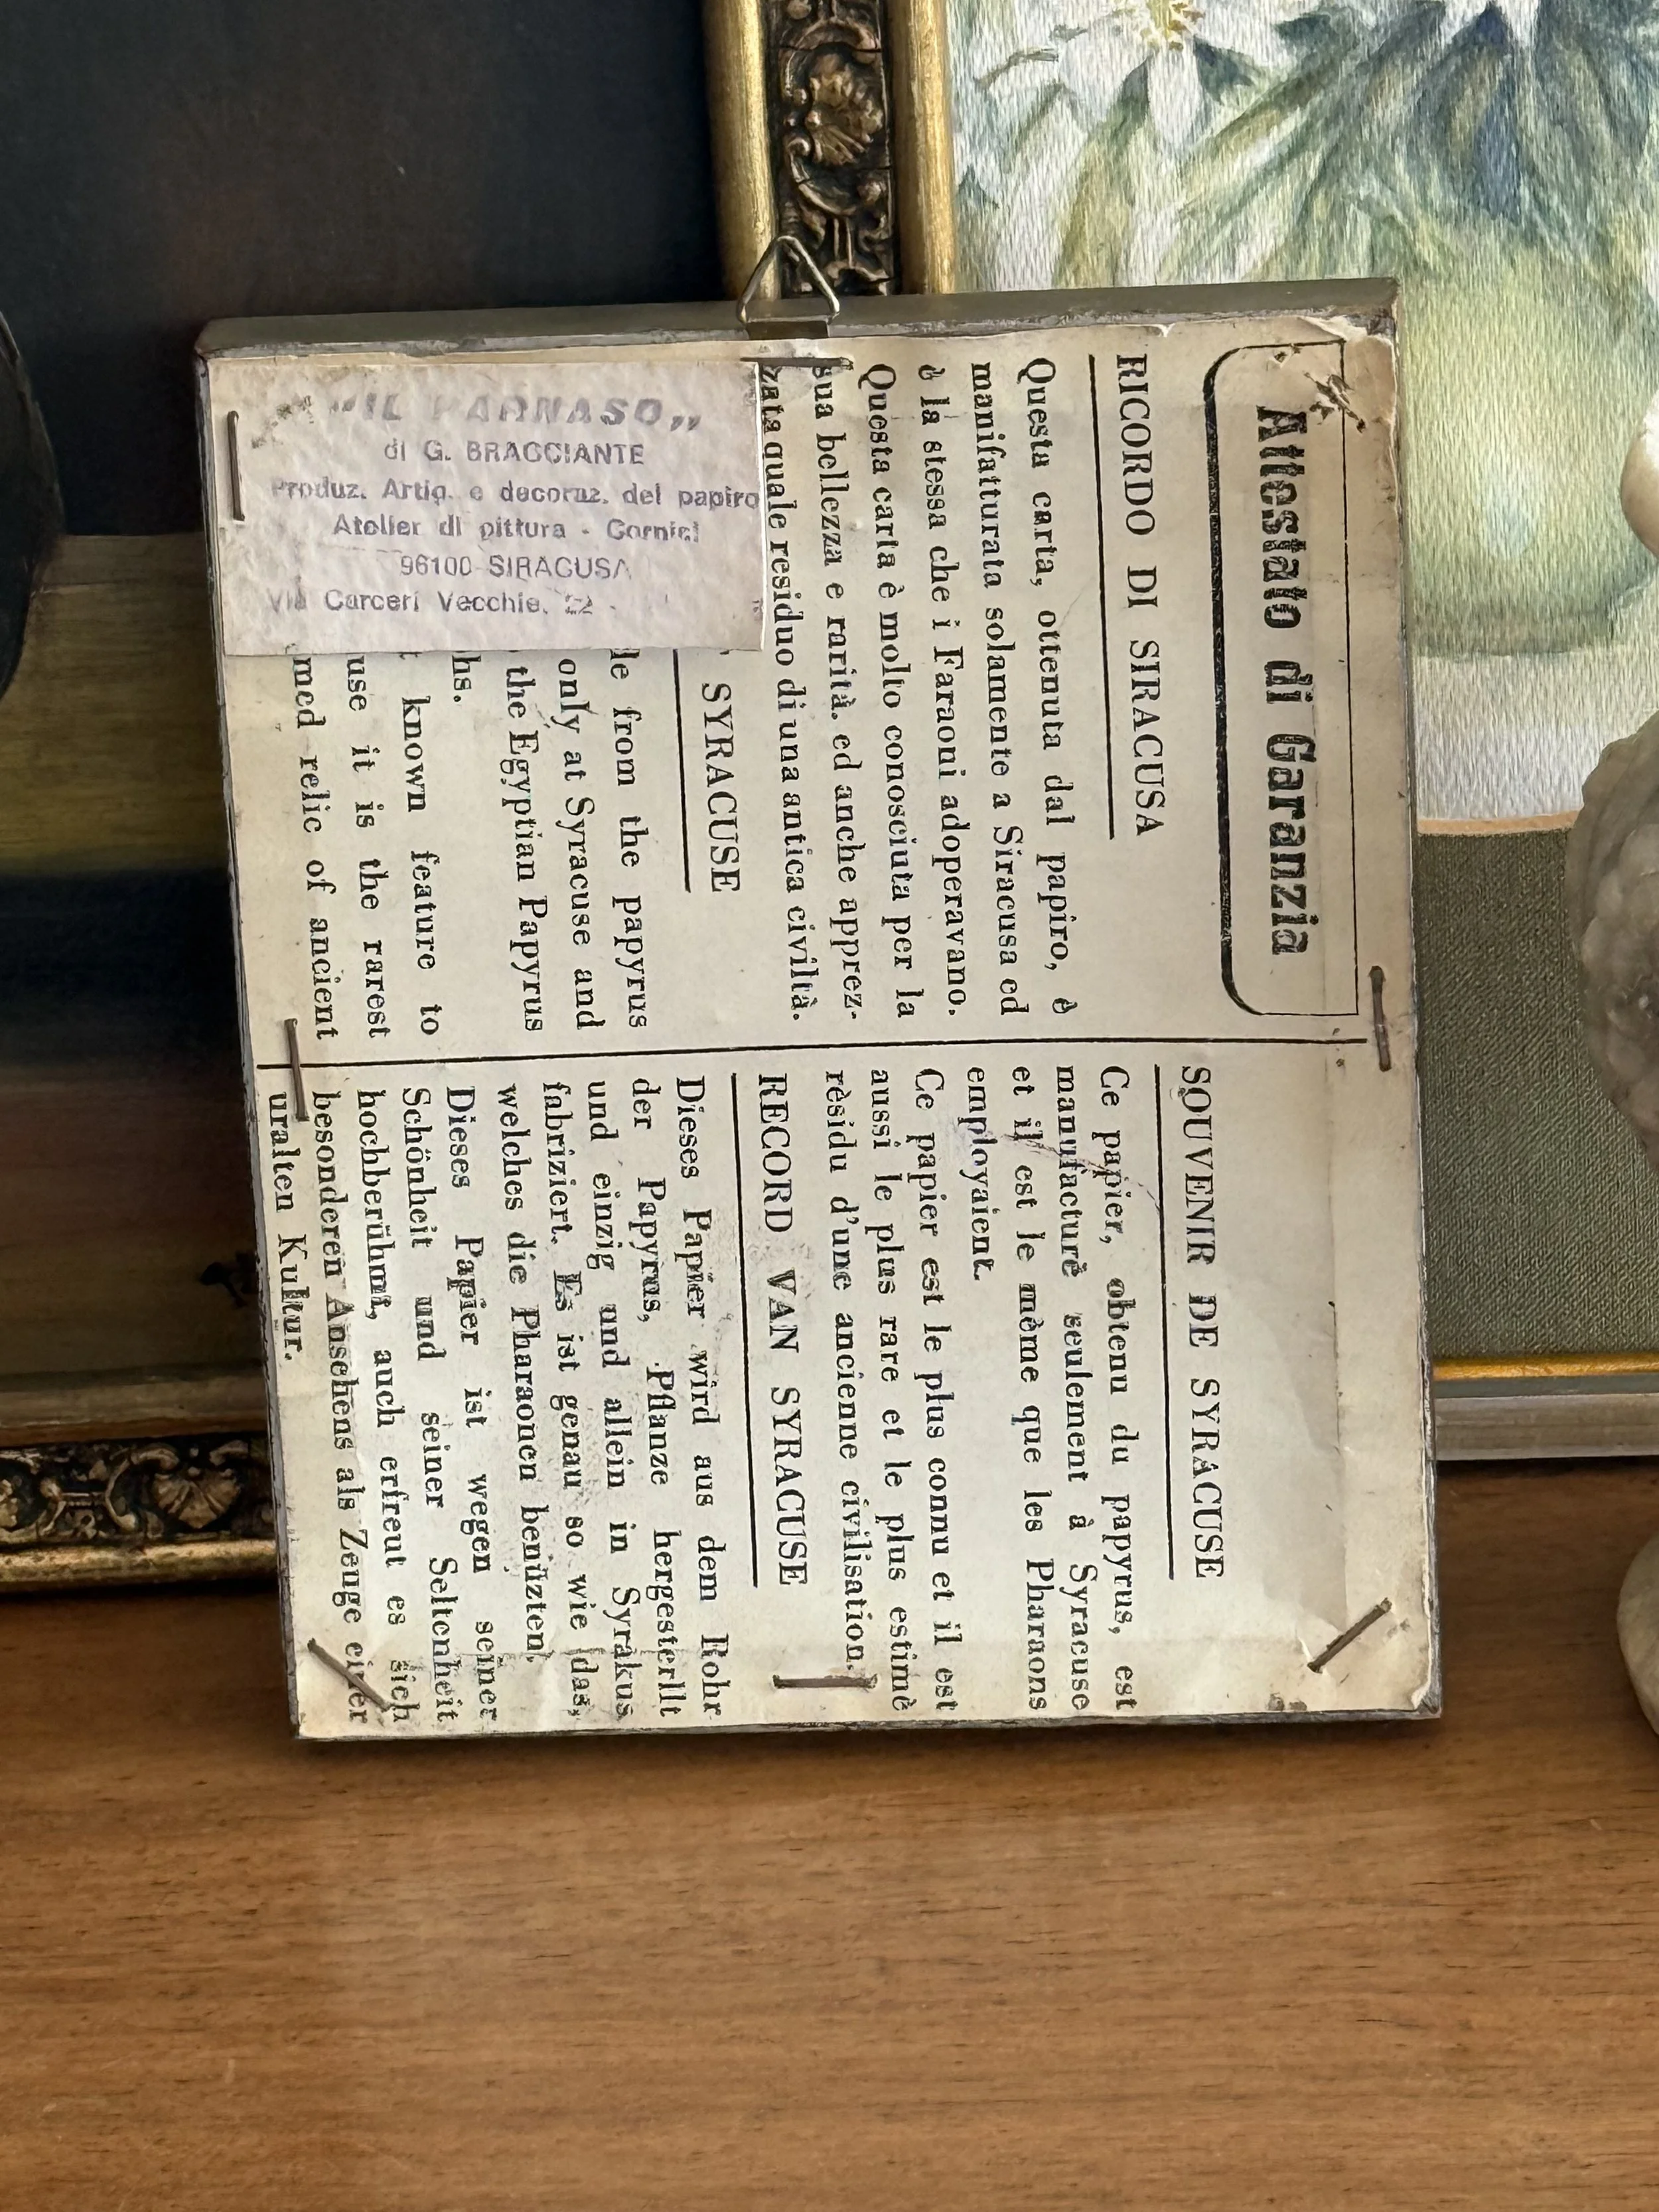 Attestato di Garanzia
RICORDO DI SIRACUSA
Questa carta, ottenuta dal papiro, è
manifatturata solamente a Siracusa ed
è la stessa che i Faraoni adoperavano.
Questa carta è molto conosciuta per la
sua bellezza e rarità. ed anche apprez-
zata quale residuo di una antica civiltà.
SYRACUSE
from the papyrus
only at Syracuse and
the Egyptian Papyrus
hs.
known feature to
use it is the rarest
med relic of ancient
SOUVENIR DE SYRACUSE
Ce papier, obtenu du papyrus, est
manufacturè seulement à Syracuse
et il est le mème que les Pharaons
employaient.
Ce papier est le plus connu et il est
aussi le plus rare et le plus estimè
rèsidu d'une ancienne civilisation.
RECORD VAN SYRACUSE
Dieses Papier wird aus dem Rohr
der Papyrus, Pflanze hergesterllt
und einzig und allein in Syrakus
fabriziert. Es ist genau so wie das,
welches die Pharaonen benüzten.
Dieses Papier ist wegen seiner
Schönheit und seiner Seltenheit
hochberühmt, auch erfreut es sich
besonderen Ansehens als Zeuge einer
uralten Kultur.
"IL PARNASO"
di G. BRACCIANTE
Produz. Artig. e decoraz. del papiro
Atelier di pittura - Cornici
96100 SIRACUSA
Via Carceri Vecchie, 22 -